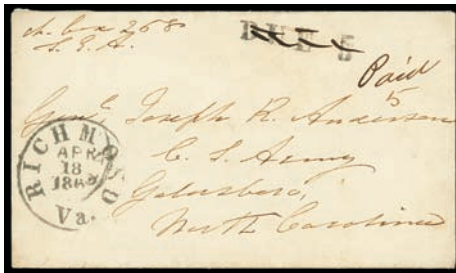 Ch. Box 268
DUE 5
Paid
5
Genl Joseph R. Anderson
C. S. Army
Goldsboro,
North Carolina
RICHMOND
APR
18
Va.